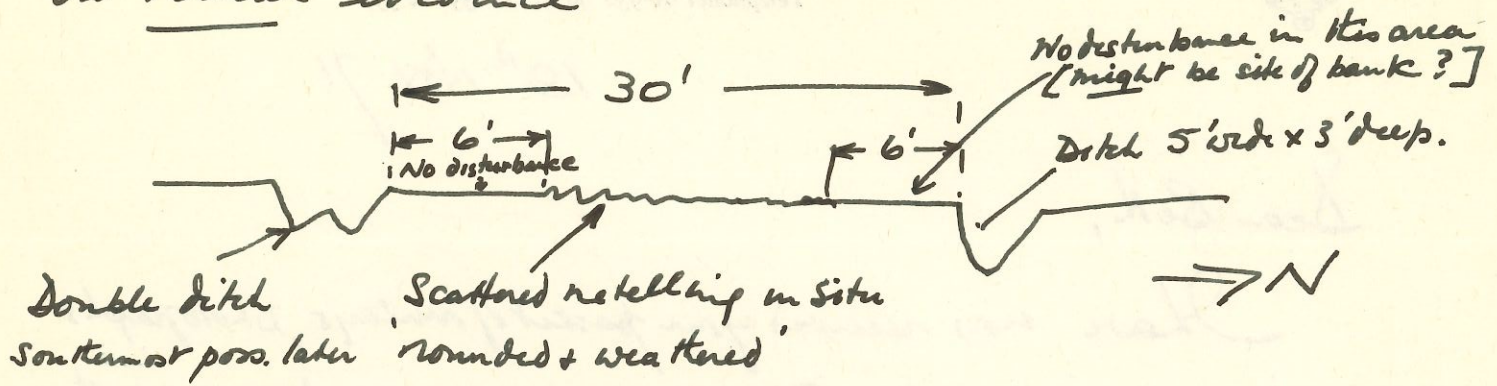 evidence
No disturbance in this area
[might be site of bank?]
30'
6'
No disturbance
6'
Ditch 5' wide x 3' deep.
Double ditch
southernmost poss. later
Scattered metelling in situ
'rounded & weathered'
N